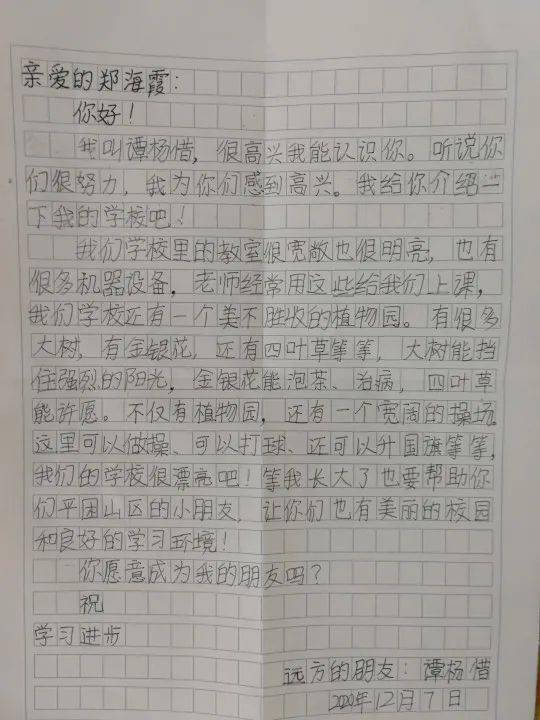 亲爱的郑海霞：
你好！
我叫谭杨惜，很高兴我能认识你。听说你
们很努力，我为你们感到高兴。我给你介绍一
下我的学校吧！
我们学校里的教室很宽敞也很明亮，也有
很多机器设备，老师经常用这些给我们上课，
我们学校还有一个美不胜收的植物园。有很多
大树，有金银花，还有四叶草等等，大树能挡
住强烈的阳光，金银花能泡茶、治病，四叶草
能许愿。不仅有植物园，还有一个宽阔的操场。
这里可以做操、可以打球、还可以升国旗等等，
我们的学校很漂亮吧！等我长大了也要帮助你
们平困山区的小朋友，让你们也有美丽的校园
和良好的学习环境！
你愿意成为我的朋友吗？
祝
学习进步
远方的朋友：谭杨惜
2020年12月7日